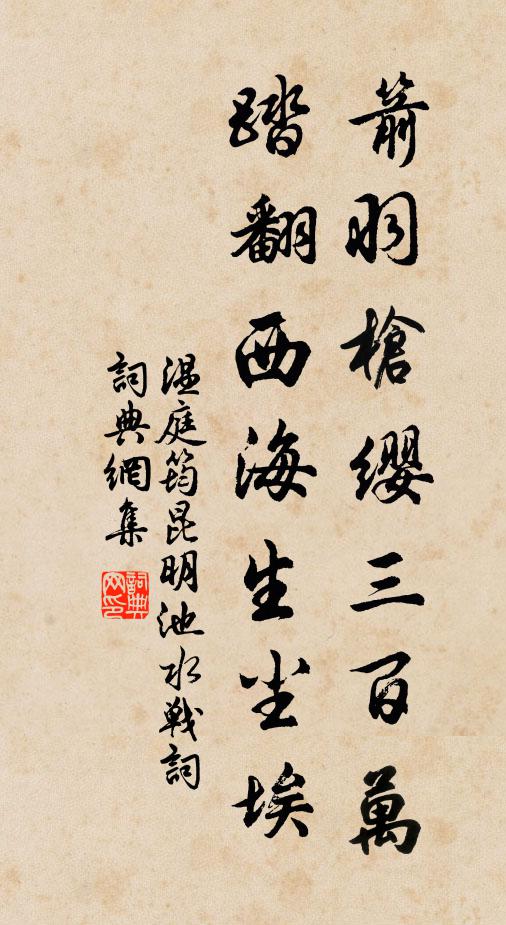 箭羽槍纓三百萬
踏翻西海生尘埃
温庭筠昆明池水戦詞
詞典網集
詞典网印